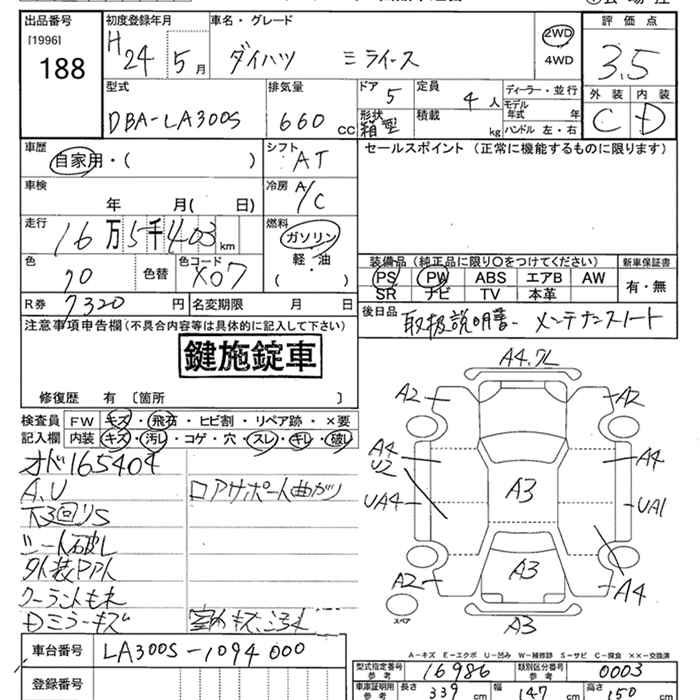 出品番号
[1996]
188
初度登録年月
H24 5月
車名・グレード
ダイハツ ミライース
2WD
4WD
評価点
3.5
外装 内装
C D
型式
DBA-LA300S
排気量
660 cc
ドア
5
形状
箱型
定員
4人
積載
kg
ディーラー・並行
モデル年式 年
ハンドル 左・右
車歴
自家用・( )
シフト
AT
セールスポイント (正常に機能するものに限ります)
車検
年 月( 日)
冷房
A/C
走行
16万5千403km
燃料
ガソリン
軽・油
( )
色
色替
色コード
X07
装備品 (純正品に限り○をつけてください)
新車保証書
PS PW ABS エアB AW
SR ナビ TV 本革
有・無
R券
7320円
名変期限 月 日
後日品
取扱説明書 メンテナンスノート
注意事項申告欄(不具合内容等は具体的に記入して下さい)
鍵施錠車
修復歴 有 〔箇所 〕
検査員
記入欄
FW キズ・飛石・ヒビ割・リペア跡・×要
内装 キズ・汚れ・コゲ・穴・スレ・キレ・破れ
オド165404
A、U
下回りS
シート破レ
クーラントもれ
Dミラーキズ
ロアサポート曲がり
室内キズ、汚れ
A4.フレ
A2 A2
A4
U2
A4
UA4
A3
UA1
A2
A3
A4
A3
スペア
A-キズ E-エクボ U-凹み W-補修跡 S-サビ C-腐食 ××-交換済
車台番号
LA300S-1094000
登録番号
型式指定番号
参考
16986
類別区分番号
参考
0003
車庫証明用
参考
長さ
339cm
幅
147cm
高さ
150cm